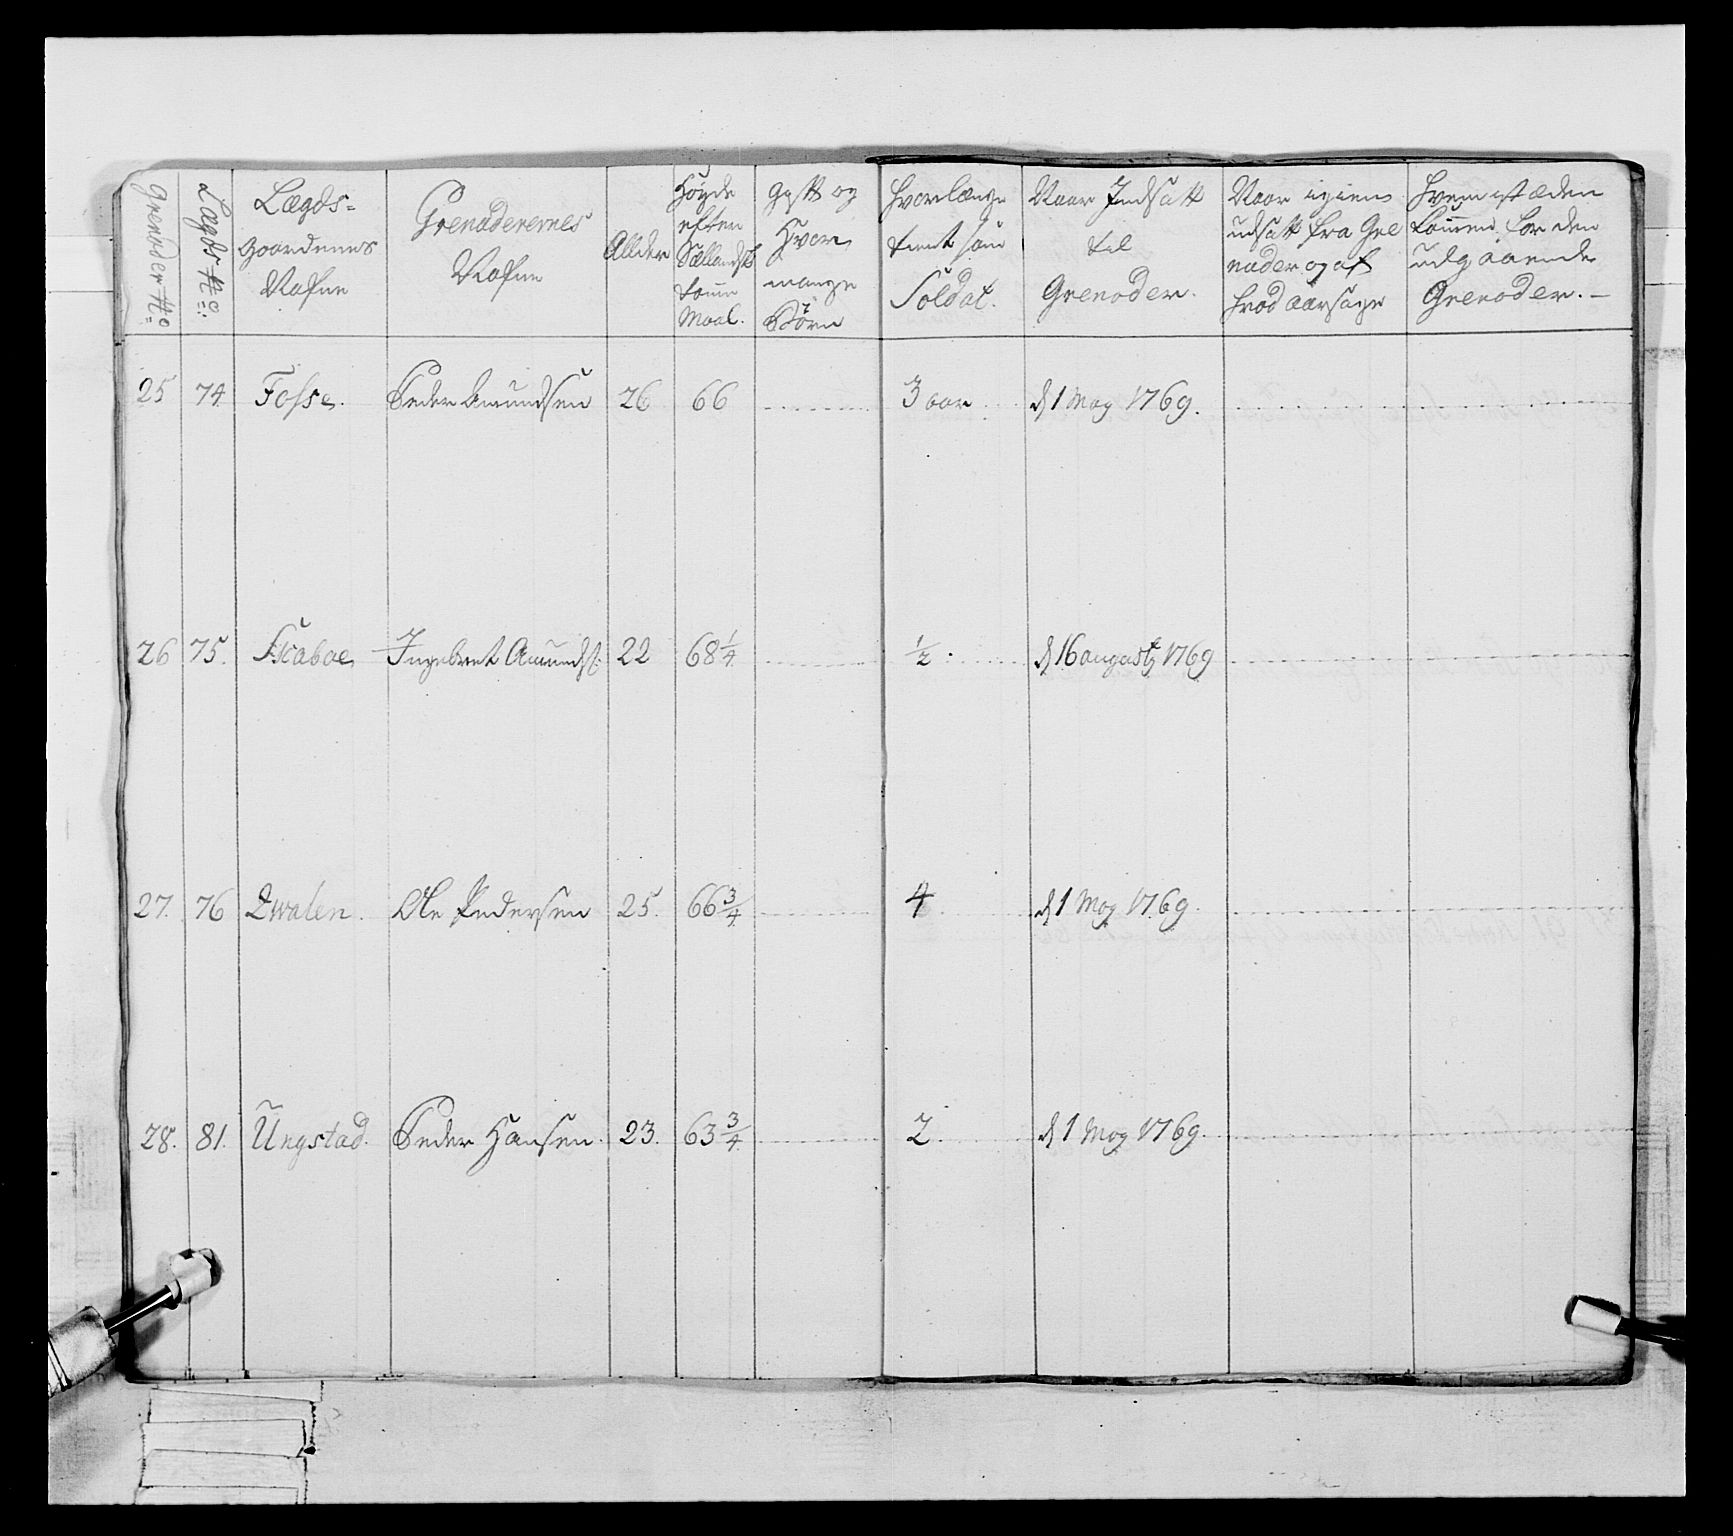 Grenoder No
Lægds No:
Lægds-
Gaardenes
Nafne
Grenaderernes
Nafne
Allder
Høyde
efter
Sællandsk
tomme
Maal.
Gift og
Hvor
mange
Børn
Hvorlænge
tient som
Soldat.
Naar Indsatt
til
Grenoder.
Naar igien
udsatt fra Gre
nader og af
hvad aarsage
Hvem istæden
kommen for den
udgaaende
Grenoder.
25 74 Fosse. Peder Amundsen 26 66 3 aar d 1 May 1769.
26 75. Skaboe Ingebret Amunds: 22 68 1/4 1/2. d 16 augusty 1769
27. 76 Qwalen. Ole Pedersen 25. 66 3/4 4 d 1 May 1769.
28. 81. Ungstad. Peder Hansen. 23. 63 3/4 2. d 1 May 1769.